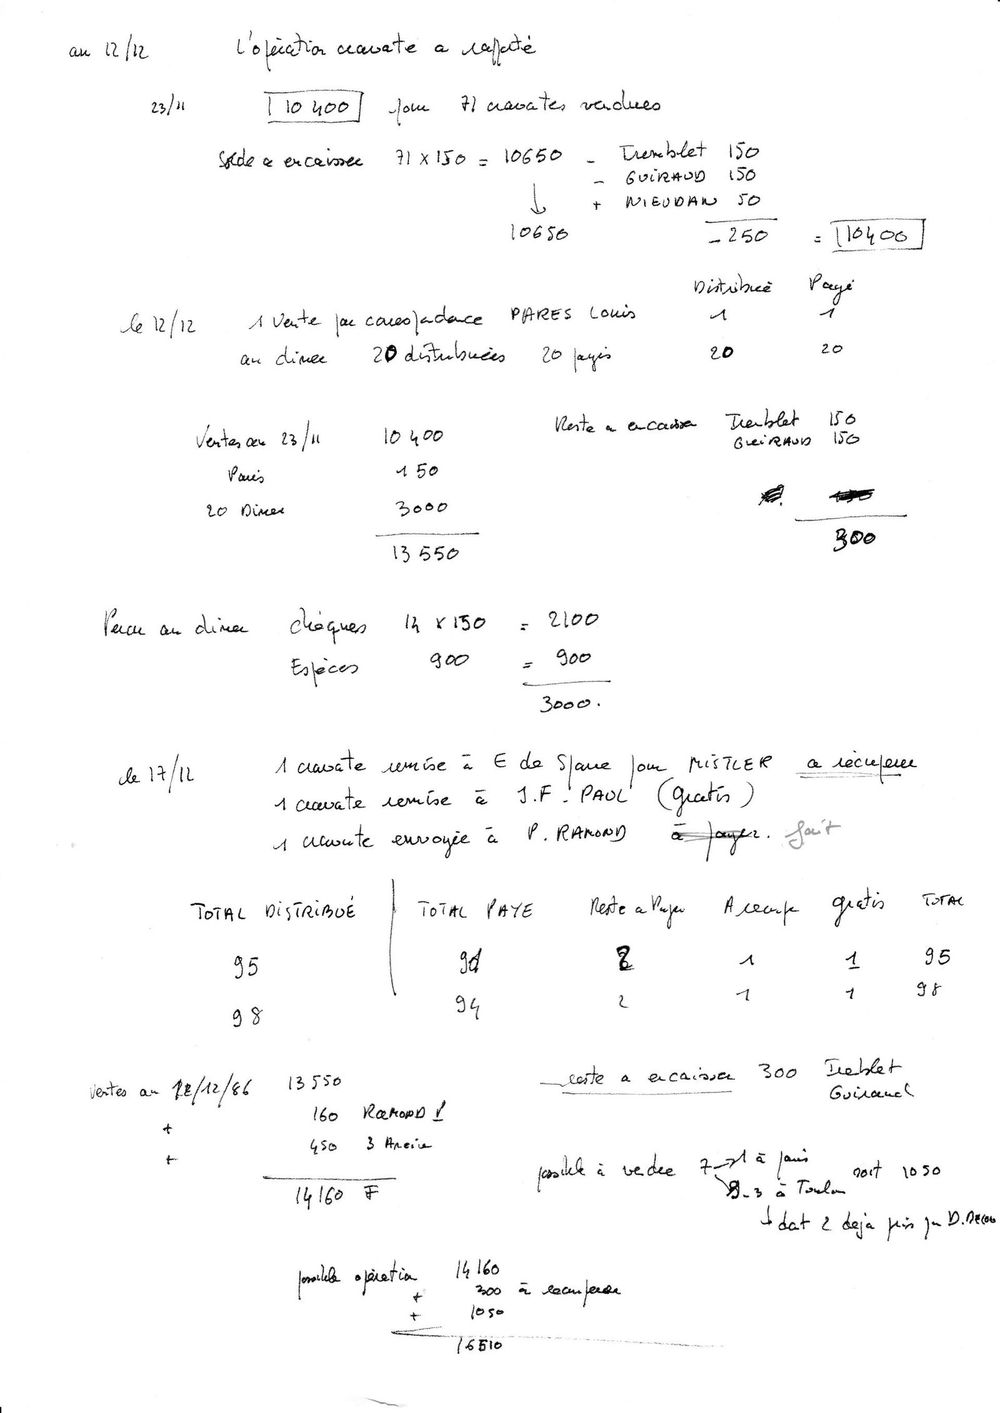 au 12/12 L'opération cravate a rapporté
23/11 10 400 pour 71 cravates vendues
Solde a encaisser 71 x 150 = 10650 - Tremblet 150
- GUIRAUD 150
+ NIEUDAN 50
10650 - 250 = 10400
Distribué Payé
le 12/12 1 vente par correspondance PARES Louis 1 1
au diner 20 distribuées 20 payés 20 20
Reste a encaisser Tremblet 150
GUIRAUD 150
Ventes au 23/11 10 400
150
20 Diner 3000
300
13 550
Percu au diner chèques 14 x 150 = 2100
Espèces 900 = 900
3000.
le 17/12 1 cravate remise à E de pour MISTLER a récuperer
1 cravate remise à J.F. PAUL (gratis)
1 cravate envoyée à P. RAMOND à payer. fait
TOTAL DISTRIBUÉ TOTAL PAYE Reste a Payer A recup gratis TOTAL
95 91 2 1 1 95
98 94 2 1 1 98
Ventes au 12/12/86 13 550
reste a encaisser 300 Tremblet
Guiraud
+ 160 RAMOND P
+ 450 3
14 160 F
possible à vendre 7 1 à paris soit 1050
3 à Toulon
dat 2 deja pris
possible opération 14 160
+ 300 à recuperer
+ 1050
16510